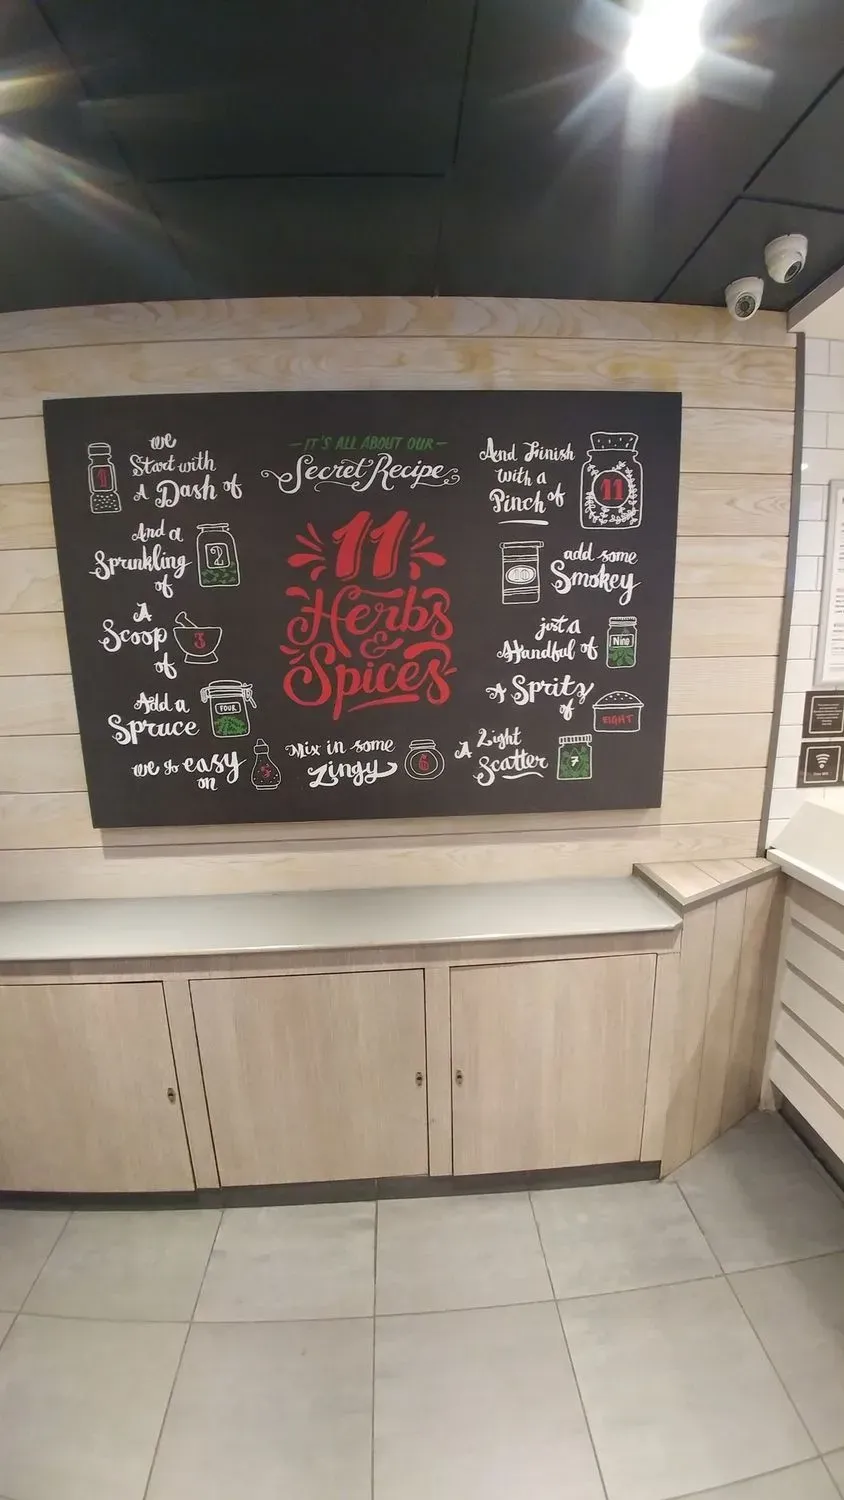 IT'S ALL ABOUT OUR
Secret Recipe
11
Herbs
&
Spices
we
Start with
A Dash of
1
And a
Sprinkling
of
2
A
Scoop
of
3
Add a
Spruce
FOUR
we go easy
on
5
Mix in some
Zingy
6
A Light
Scatter
7
A Spritz
of
EIGHT
just a
Handful of
Nine
add some
Smokey
10
And Finish
with a
Pinch of
11
Free WiFi